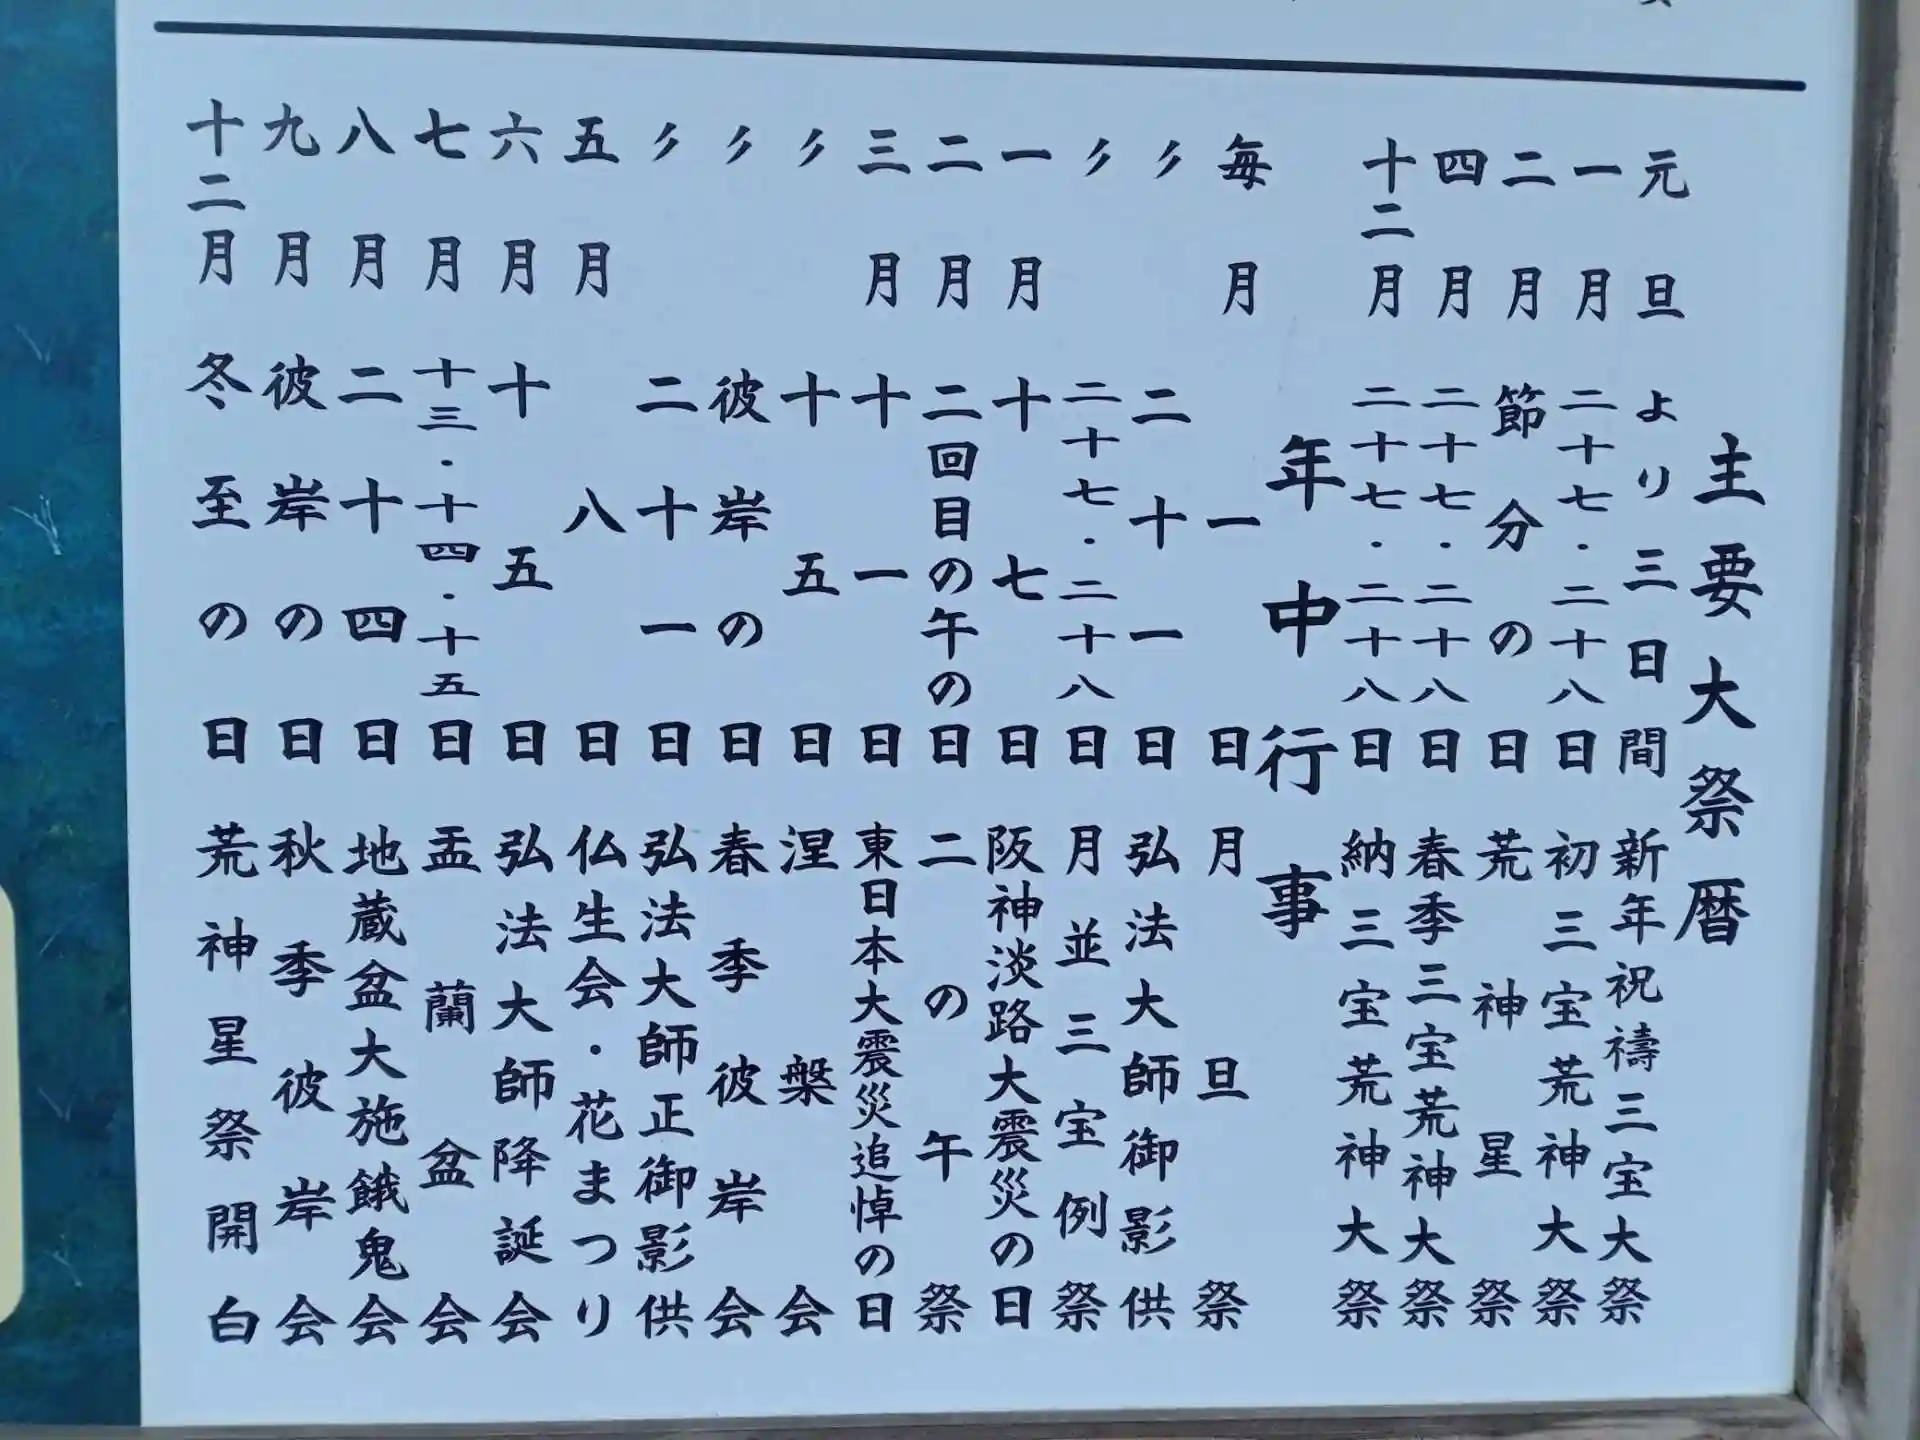 主要大祭暦
元旦より三日間 新年祝禱三宝大祭
一月二十七・二十八日 初三宝荒神大祭
二月節分の日 荒神星祭
四月二十七・二十八日 春季三宝荒神大祭
十二月二十七・二十八日 納三宝荒神大祭
年中行事
毎月一日 月旦祭
〃二十一日 弘法大師御影供
〃二十七・二十八日 月並三宝例祭
一月十七日 阪神淡路大震災の日
二月二回目の午の日 二の午祭
三月十一日 東日本大震災追悼の日
〃十五日 涅槃会
〃彼岸の日 春季彼岸会
〃二十一日 弘法大師正御影供
五月八日 仏生会・花まつり
六月十五日 弘法大師降誕会
七月十三・十四・十五日 盂蘭盆会
八月二十四日 地蔵盆大施餓鬼会
九月彼岸の日 秋季彼岸会
十二月冬至の日 荒神星祭開白